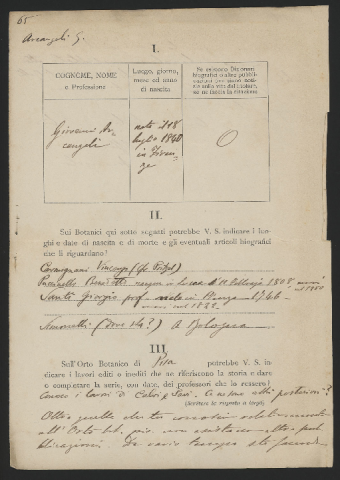 65
Arcangeli G.
I.
COGNOME, NOME
e Professione
Luogo, giorno,
mese ed anno
di nascita
Se esistono Dizionari
biografici o altre pubbli-
cazioni con notizie
sulla vita del Dottore,
se ne faccia la citazione
Giovanni Ar-
cangeli
nato il 18
luglio 1840
in Firen-
ze
O
II.
Sui Botanici qui sotto segnati potrebbe V. S. indicare i luo-
ghi e date di nascita e di morte e gli eventuali articoli biografici
che li riguardano?
Carmignani Vincenzo
Puccinelli Benedetto Lucca 1808 morì
nel 1850
Santi Giorgio prof. nato in Pienza 1746
morì nel 1822
Simonelli (dove sta?) a Bologna
III.
Sull'Orto Botanico di Pisa potrebbe V. S. in-
dicare i lavori editi o inediti che ne riferiscono la storia e dare
o completare la serie, con date, dei professori che lo ressero?
(Scrivere la risposta a tergo).
Conosco i lavori di Calvi e Savi. Ce ne sono altri posteriori?
Oltre quelle che tu conosci relativamente
all'Orto bot. pis. non esistono altre pub-
blicazioni.